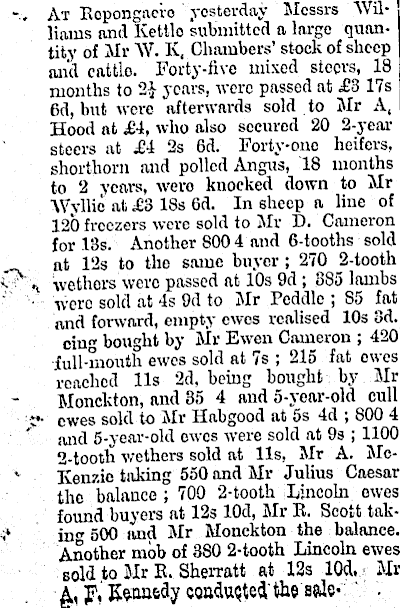 AT Repongaere yesterday Messrs Wil-
liams and Kettle submitted a large quan-
tity of Mr W. K. Chambers' stock of sheep
and cattle. Forty-five mixed steers, 18
months to 2½ years, were passed at £3 17s
6d, but were afterwards sold to Mr A.
Hood at £4, who also secured 20 2-year
steers at £4 2s 6d. Forty-one heifers,
shorthorn and polled Angus, 18 months
to 2 years, were knocked down to Mr
Wyllie at £3 18s 6d. In sheep a line of
120 freezers were sold to Mr D. Cameron
for 13s. Another 800 4 and 6-tooths sold
at 12s to the same buyer ; 270 2-tooth
wethers were passed at 10s 9d ; 385 lambs
were sold at 4s 9d to Mr Peddle ; 85 fat
and forward, empty ewes realised 10s 3d.
cing bought by Mr Ewen Cameron ; 420
full-mouth ewes sold at 7s ; 215 fat ewes
reached 11s 2d, being bought by Mr
Monckton, and 35 4 and 5-year-old cull
ewes sold to Mr Habgood at 5s 4d ; 800 4
and 5-year-old ewes were sold at 9s ; 1100
2-tooth wethers sold at 11s, Mr A. Mc-
Kenzie taking 550 and Mr Julius Caesar
the balance ; 700 2-tooth Lincoln ewes
found buyers at 12s 10d, Mr R. Scott tak-
ing 500 and Mr Monckton the balance.
Another mob of 380 2-tooth Lincoln ewes
sold to Mr R. Sherratt at 12s 10d. Mr
A. F. Kennedy conducted the sale.